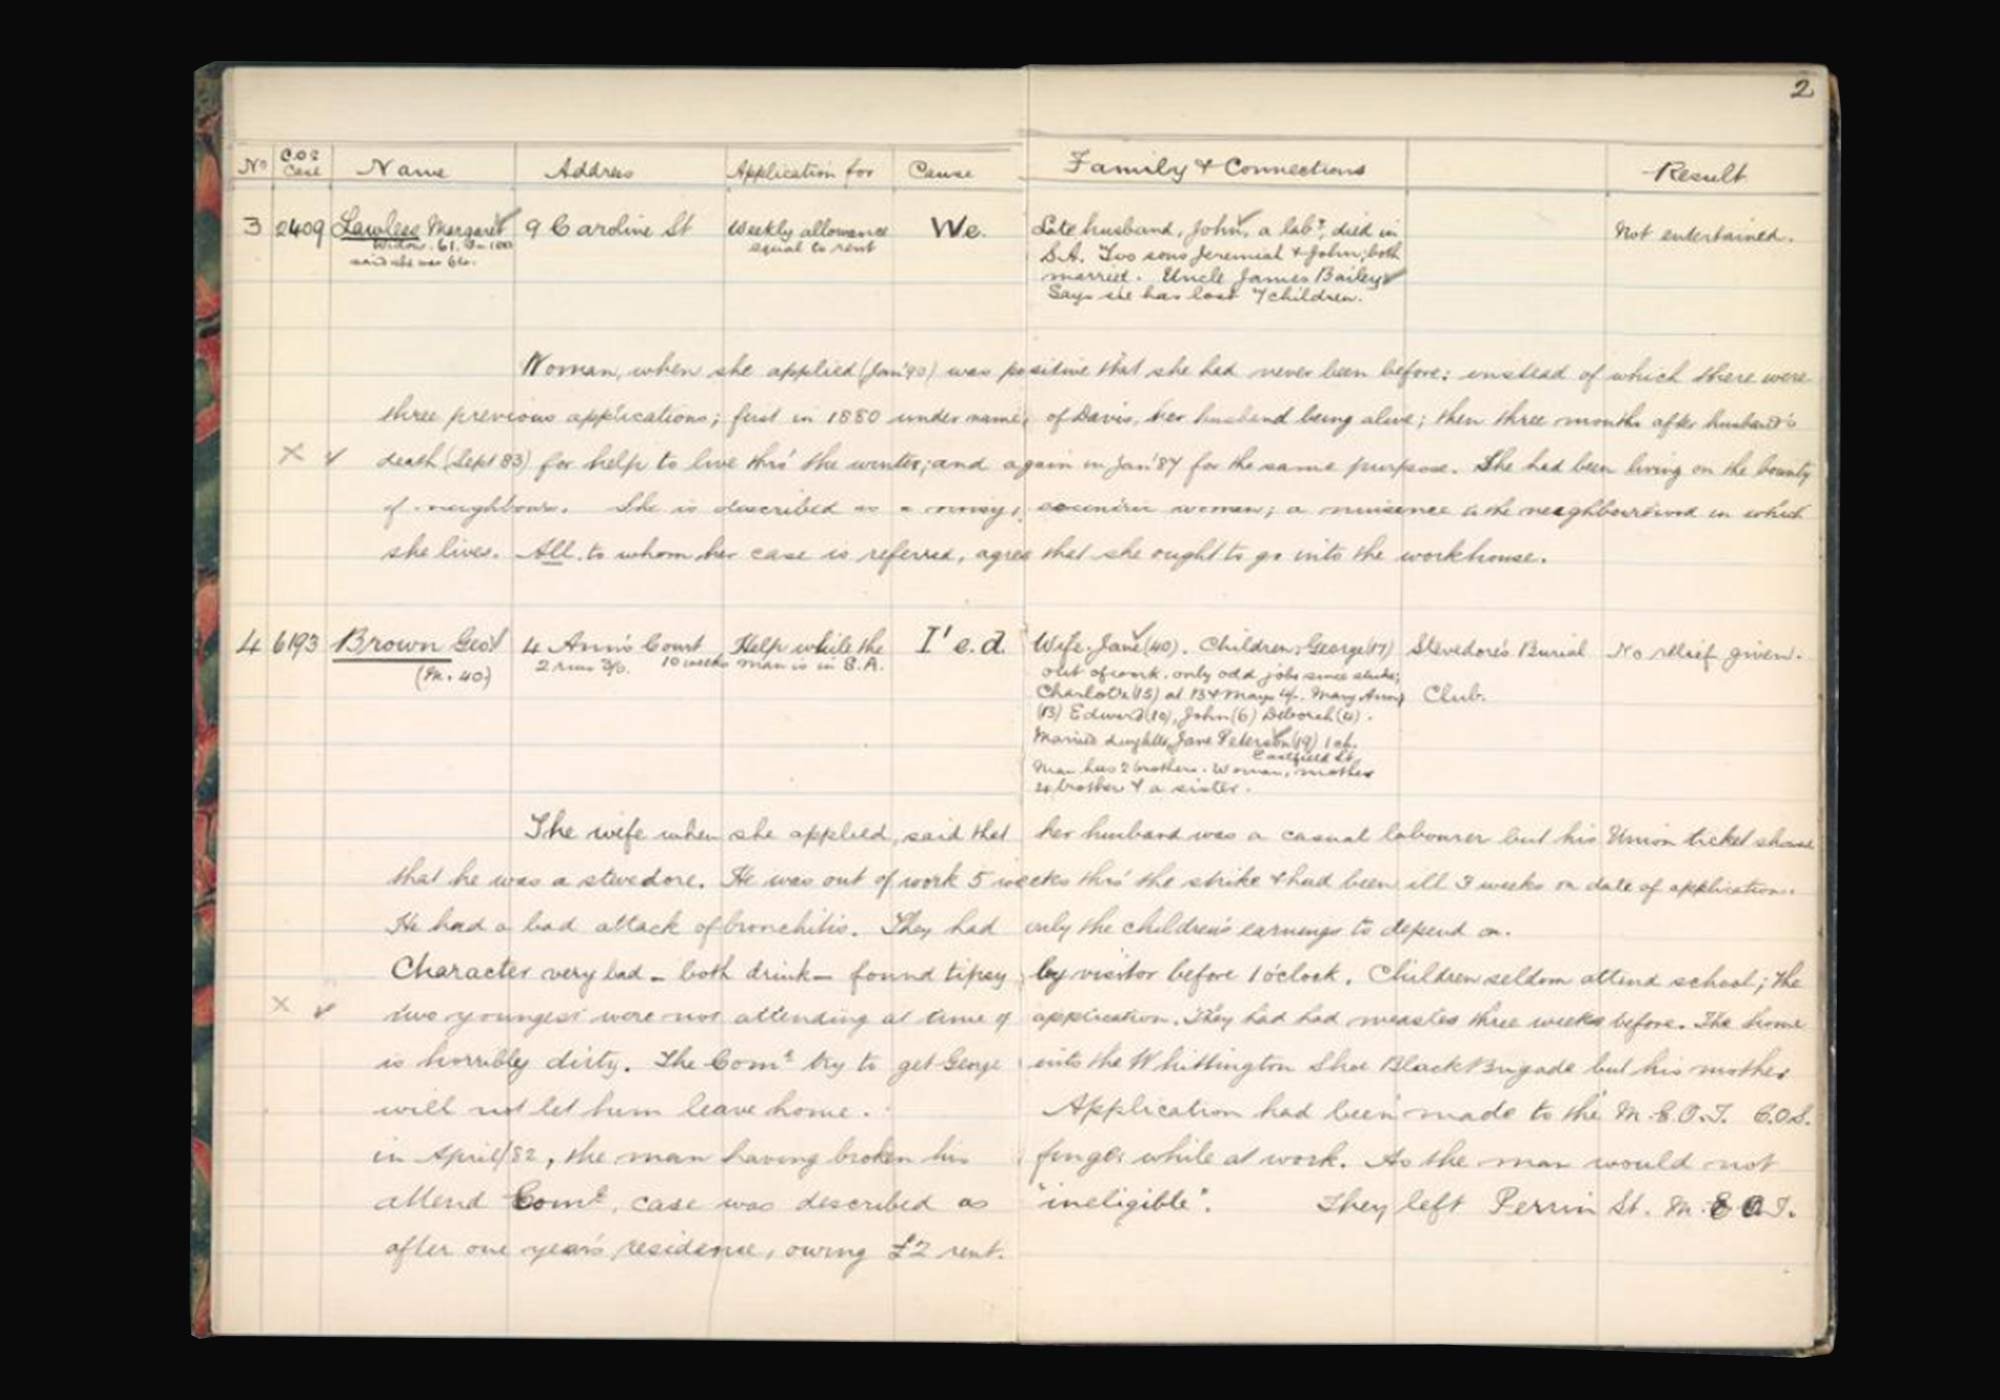 2
No C.O.S. Case Name Address Application for Cause Family & Connections Result
3 2409 Lawless Margaret 9 Caroline St Weekly allowance We. Late husband, John, a labr, died in Not entertained.
Widow. 61. In 100 equal to rent S.A. Two sons Jeremiah & John; both
said she was 60. married. Uncle James Bailey
Says she has lost 7 children.
Woman, when she applied (Jan '90) was positive that she had never been before: instead of which there were
three previous applications; first in 1880 under name of Davis, her husband being alive; then three months after husband's
X death (Sept 83) for help to live thro' the winter; and again in Jan '87 for the same purpose. She had been living on the bounty
of neighbours. She is described as a noisy, eccentric woman; a nuisance to the neighbourhood in which
she lives. All to whom her case is referred, agree that she ought to go into the workhouse.
4 6193 Brown Geo 4 Ann's Court Help while the I' e.d. Wife. Jane (40). Children; George (17) Stevedore's Burial No relief given.
(M. 40) 2 rms 3/0. 10 weeks man is in S.A. out of work, only odd jobs since strike;
Charlotte (15) at B & Mays 4/-. Mary Ann Club.
(13) Edward (10), John (6) Deborah (4).
Married daughter, Jane Peterson (19)
Eastfield St.
Man has 2 brothers. Woman, mother
brother & a sister.
The wife when she applied, said that her husband was a casual labourer but his Union ticket shows
that he was a stevedore. He was out of work 5 weeks thro' the strike & had been ill 3 weeks on date of application.
He had a bad attack of bronchitis. They had only the children's earnings to depend on.
Character very bad – both drink – found tipsy by visitor before 1 o'clock. Children seldom attend school; the
X two youngest were not attending at time of application. They had had measles three weeks before. The home
is horribly dirty. The Comee try to get George into the Whittington Shoe Black Brigade but his mother
will not let him leave home. Application had been made to the M.E.O.T. C.O.S.
in April/82, the man having broken his finger while at work. As the man would not
attend Comee, case was described as "ineligible". They left Perrin St. M.E.O.T.
after one year's residence, owing £2 rent.